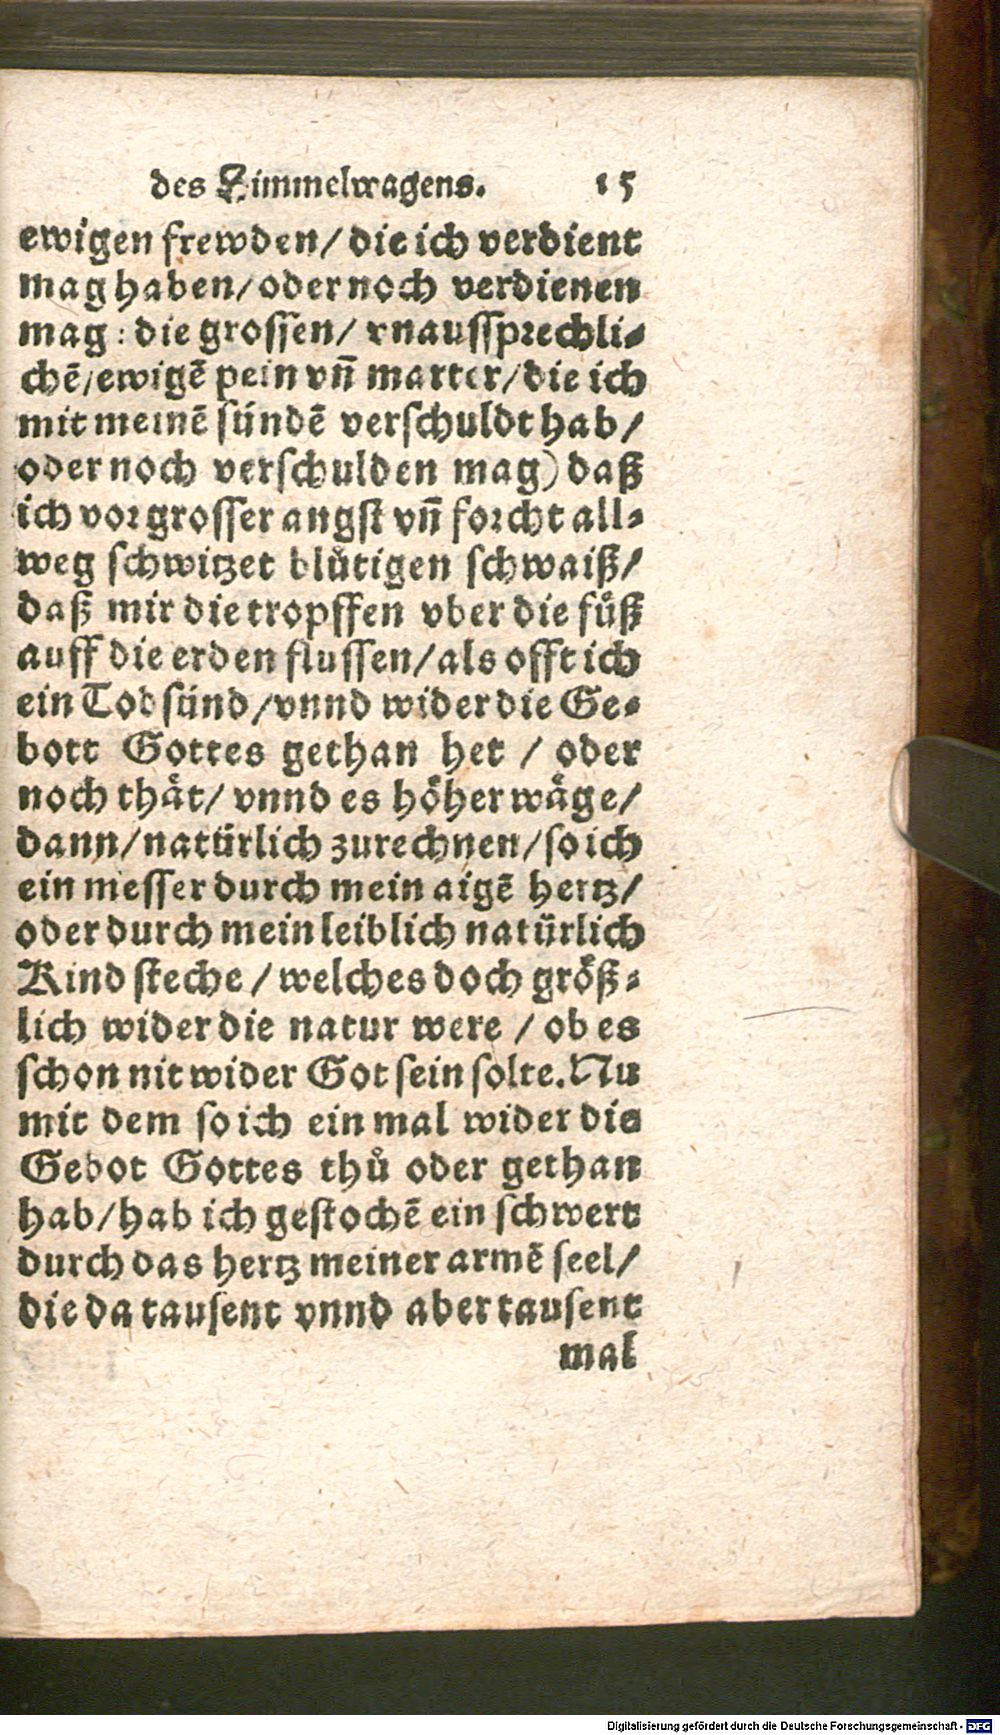 des Himmelwagens. 15
ewigen frewden/ die ich verdient
mag haben/ oder noch verdienen
mag: die grossen/ vnaussprechli⸗
chē/ ewigē pein vn̄ marter/ die ich
mit meinē sündē verschuldt hab/
oder noch verschulden mag) daß
ich vor grosser angst vn̄ forcht all⸗
weg schwitzet blůtigen schwaiß/
daß mir die tropffen vber die fůß
auff die erden flussen/ als offt ich
ein Todsünd/ vnnd wider die Ge⸗
bott Gottes gethan het / oder
noch thåt/ vnnd es höher wåge/
dann/ natürlich zurechnen/ so ich
ein messer durch mein aigē hertz/
oder durch mein leiblich natürlich
Kind steche / welches doch größ⸗
lich wider die natur were / ob es
schon nit wider Got sein solte. Nu
mit dem so ich ein mal wider die
Gebot Gottes thů oder gethan
hab/ hab ich gestochē ein schwert
durch das hertz meiner armē seel/
die da tausent vnnd aber tausent
mal
Digitalisierung gefördert durch die Deutsche Forschungsgemeinschaft - DFG